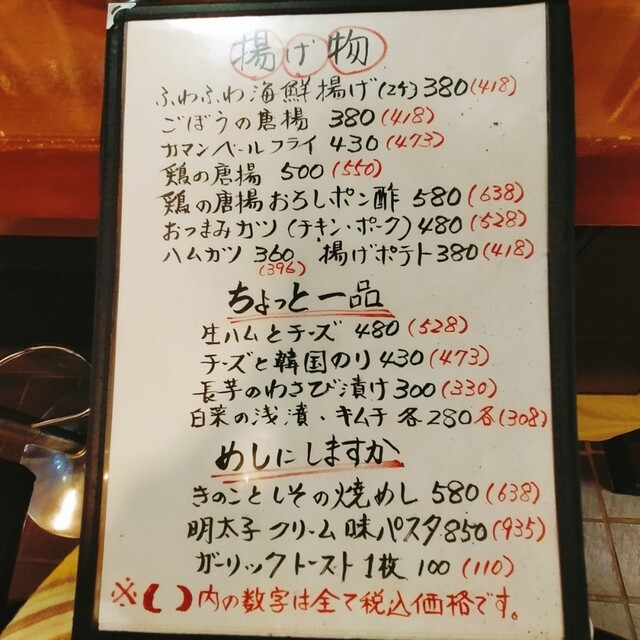 揚げ物
ふわふわ海鮮揚げ(2ケ) 380(418)
ごぼうの唐揚 380(418)
カマンベールフライ 430(473)
鶏の唐揚 500(550)
鶏の唐揚おろしポン酢 580(638)
おつまみカツ(チキン・ポーク) 480(528)
ハムカツ 360(396) 揚げポテト380(418)
ちょっと一品
生ハムとチーズ 480(528)
チーズと韓国のり430(473)
長芋のわさび漬け300(330)
白菜の浅漬・キムチ各280各(308)
めしにしますか
きのことしその焼めし 580(638)
明太子クリーム味パスタ850(935)
ガーリックトースト1枚 100(110)
※( )内の数字は全て税込価格です。